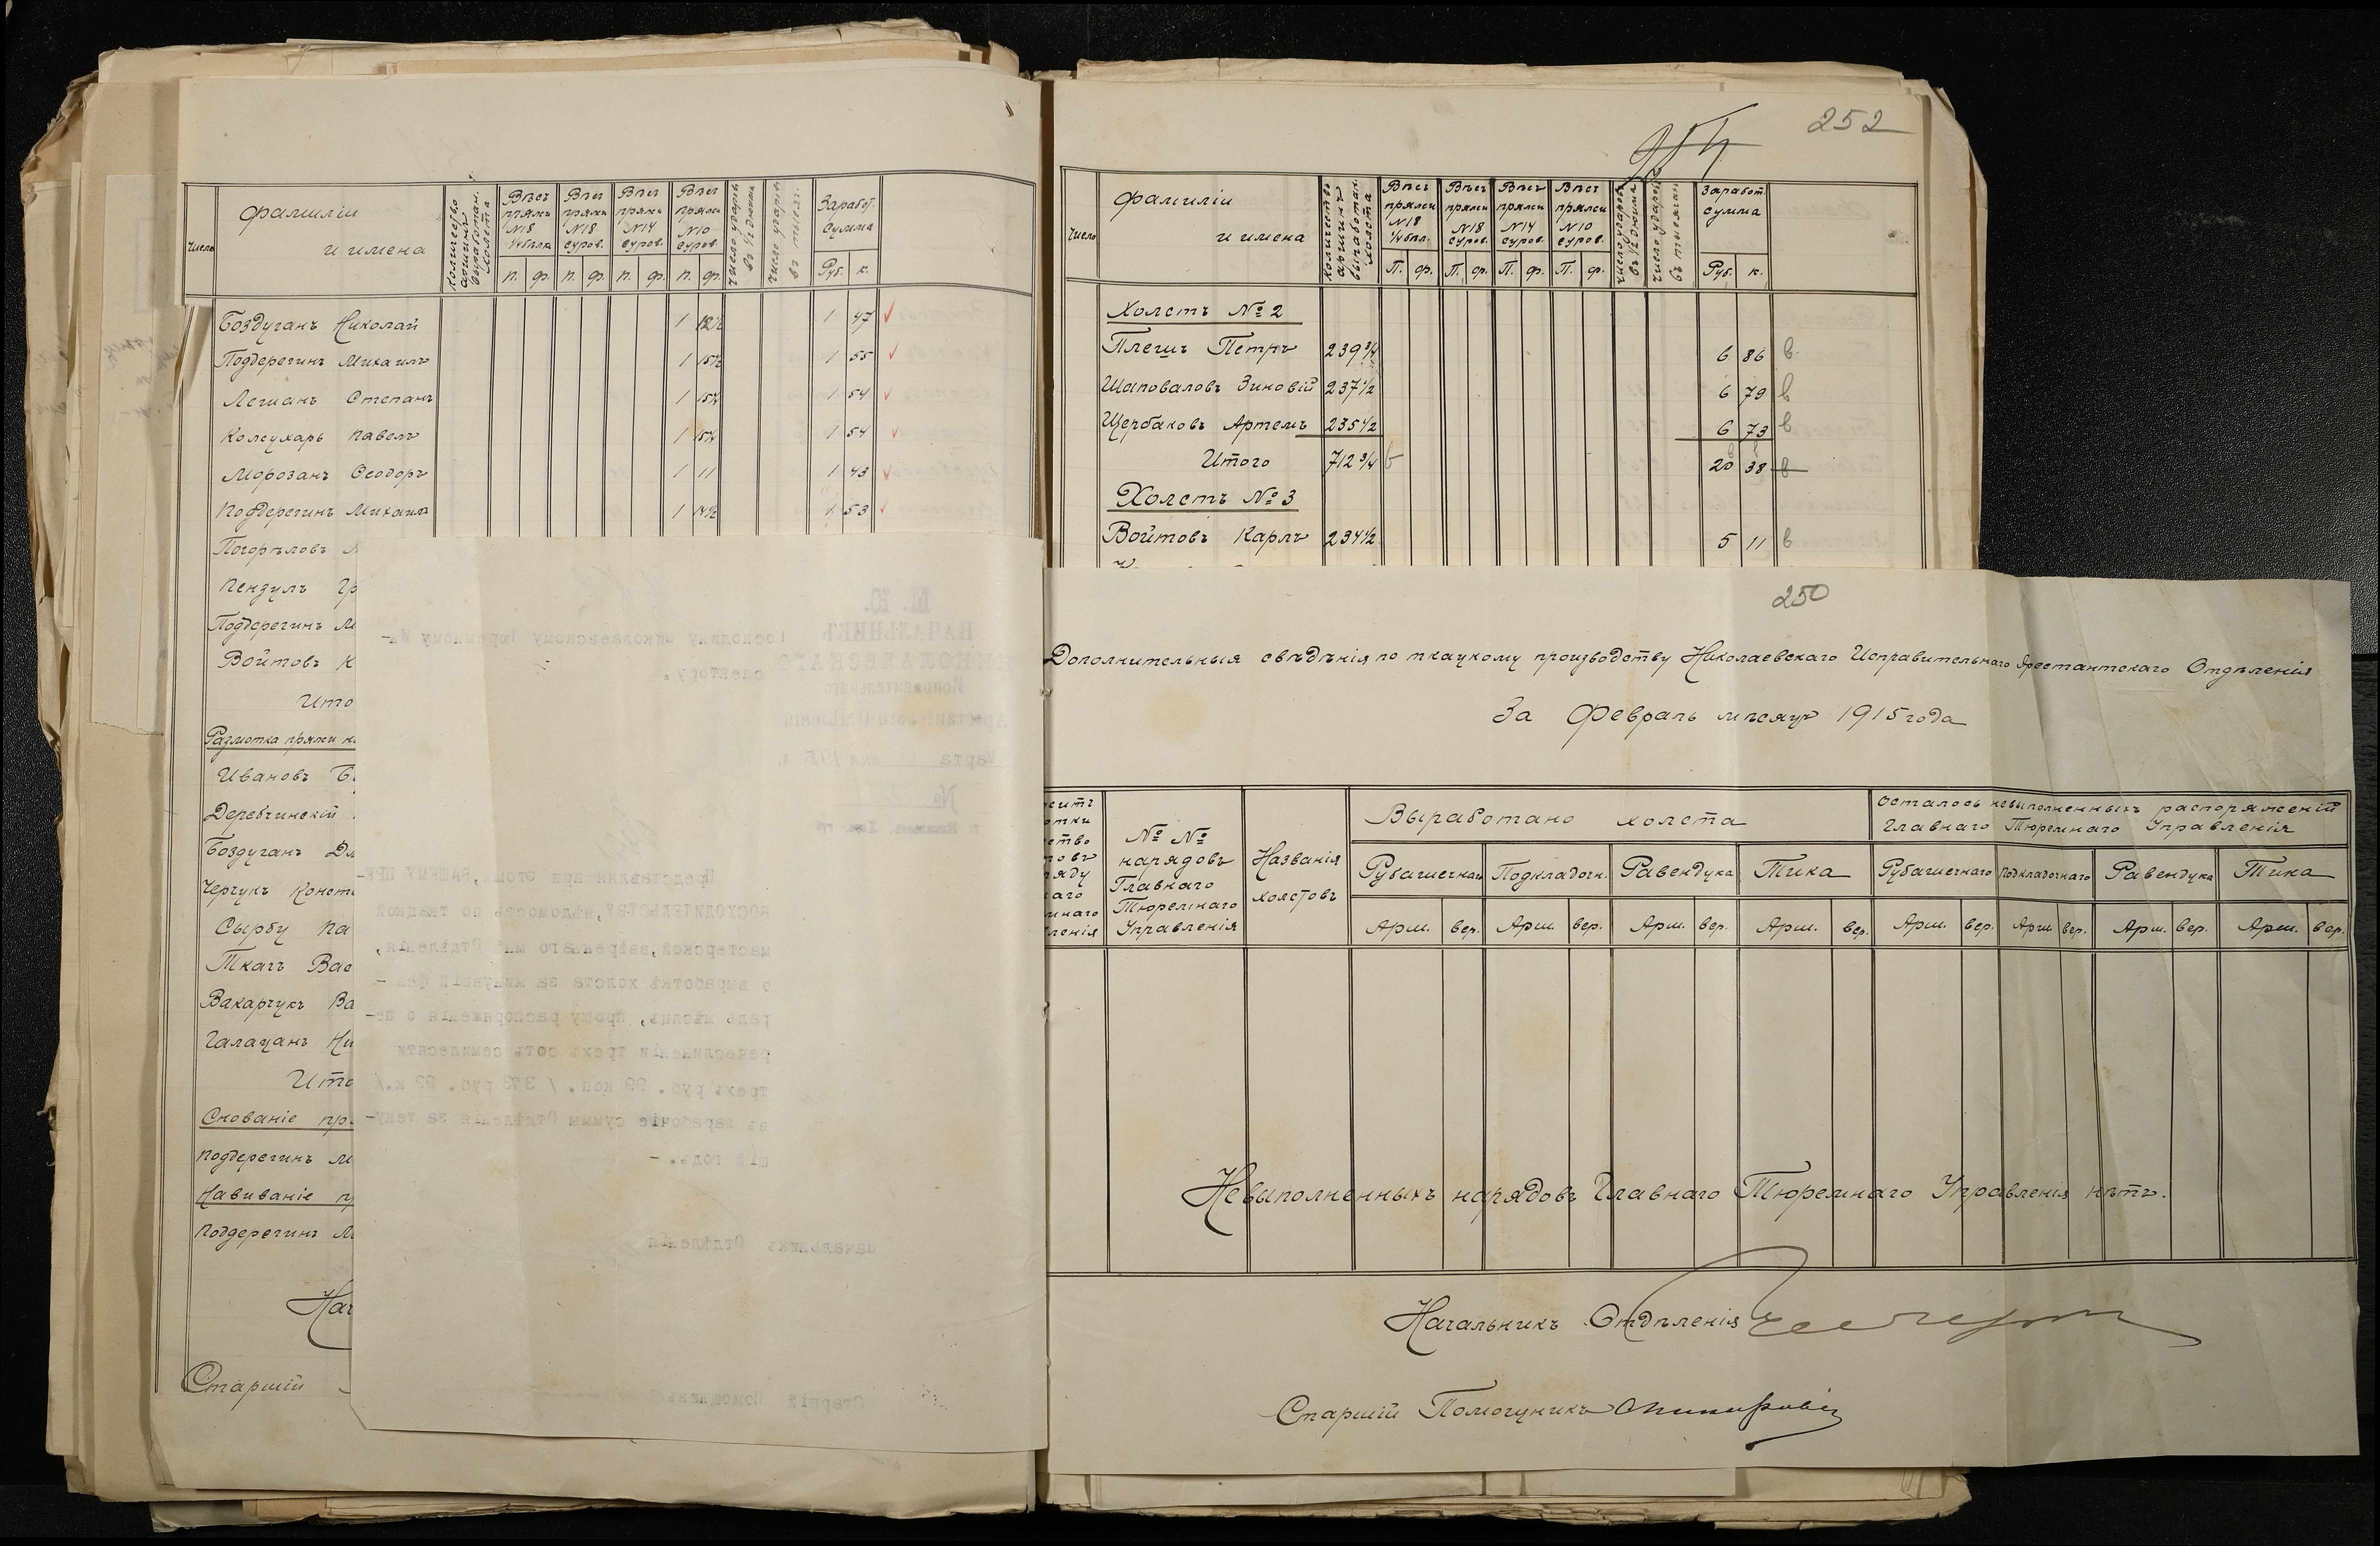 Число
Фамиліи
и имена
Количество аршинъ выработан. холста
Вѣсъ пряжи №18 1/4 бѣлл.
Вѣсъ пряжи №18 суров.
Вѣсъ пряжи №14 суров.
Вѣсъ пряжи №10 суров.
Число ударовъ въ 1/2 дюйма
Число ударовъ въ тысяч.
Заработ. сумма
п. ф. п. ф. п. ф. п. ф. Руб. к.
Боздуганъ Николай 1 12½ 1 47
Поддерегинъ Михаилъ 1 15½ 1 55
Легианъ Степанъ 1 15¼ 1 54
Колсухарь Павелъ 1 15¼ 1 54
Морозанъ Ѳеодоръ 1 11 1 43
Поддерегинъ Михаилъ 1 14½ 1 53
Погорѣловъ
Пензулъ Гр
Поддерегинъ М
Войтовъ К
Ито
Размотка пряжи н
Ивановъ
Деребчинскій
Боздуганъ Дм
Черчукъ Конст
Сырбу Па
Ткачъ Вас
Вакарчукъ Ва
Галацанъ Ни
Ито
Снованіе пр.
Поддерегинъ М
Навиваніе п
Поддерегинъ М
Нач
Старшій
М. Ю.
НАЧАЛЬНИКЪ
НИКОЛАЕВСКАГО
Исправительнаго
Арестантскаго Отдѣленія
Марта дня 191 г.
№
Господину Николаевскому Тюремному Ин-
спектору.
Представляя при этомъ, ВАШЕМУ ПРЕ-
ВОСХОДИТЕЛЬСТВУ, вѣдомость по ткацкой
мастерской, ввѣреннаго мнѣ Отдѣленія,
о выработкѣ холста за минувшій фев-
раль мѣсяцъ, прошу распоряженія о пе-
речисленіи трехъ сотъ семидесяти
трехъ руб. 99 коп. / 373 руб. 99 к./
въ заработныя суммы Отдѣленія за теку-
щій годъ. -
Начальникъ Отдѣленія
Старшій Помощникъ
252
Число
Фамиліи
и имена
Количество аршинъ выработан. холста
Вѣсъ пряжи №18 1/4 бѣл.
Вѣсъ пряжи №18 суров.
Вѣсъ пряжи №14 суров.
Вѣсъ пряжи №10 суров.
Число ударовъ въ 1/2 дюйма
Число ударовъ въ тысячахъ
Заработ. сумма
П. ф. П. ф. П. ф. П. ф. Руб. к.
Холстъ №2
Плешъ Петръ 239¾ 6 86 в
Шаповаловъ Зиновій 237½ 6 79 в
Щербаковъ Артемъ 235½ 6 73 в
Итого 712¾ 20 38 в
Холстъ №3
Войтовъ Карлъ 234½ 5 11 в
250
Дополнительныя свѣдѣнія по ткацкому производству Николаевскаго Исправительнаго Арестантскаго Отдѣленія
За Февраль мѣсяцъ 1915 года
№ № нарядовъ Главнаго Тюремнаго Управленія
Названія холстовъ
Выработано холста
Осталось невыполненныхъ распоряженій Главнаго Тюремнаго Управленія
Рубашечнаго Подкладочн. Равендука Тика Рубашечнаго Подкладочнаго Равендука Тика
Арш. вер. Арш. вер. Арш. вер. Арш. вер. Арш. вер. Арш. вер. Арш. вер. Арш. вер.
Невыполненныхъ нарядовъ Главнаго Тюремнаго Управленія нѣтъ.
Начальникъ Отдѣленія
Старшій Помощникъ